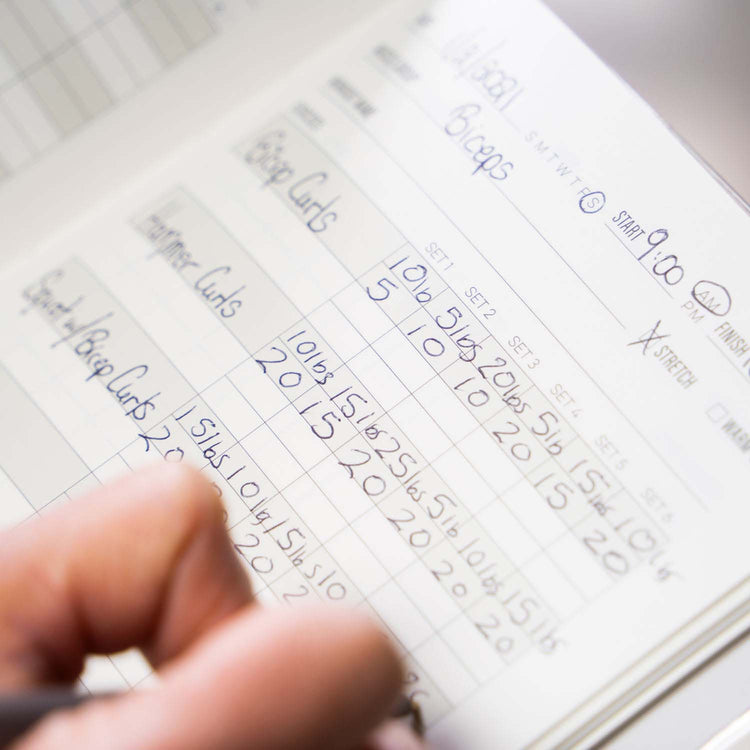 Biceps
S M T W T F S
START 9:00 AM PM
FINISH
X STRETCH
SET 1 SET 2 SET 3 SET 4 SET 5 SET 6
Bicep Curls
10lb 5lbs 20lbs 5lb 15lbs 10lbs
5 10 10 20 15 20
Hammer Curls
10lbs 15lbs 25lbs 5lb 10lbs 15lbs
20 15 20 20 20 20
Squat w/Bicep Curls
15lbs 10lb 15lbs 10
20 20